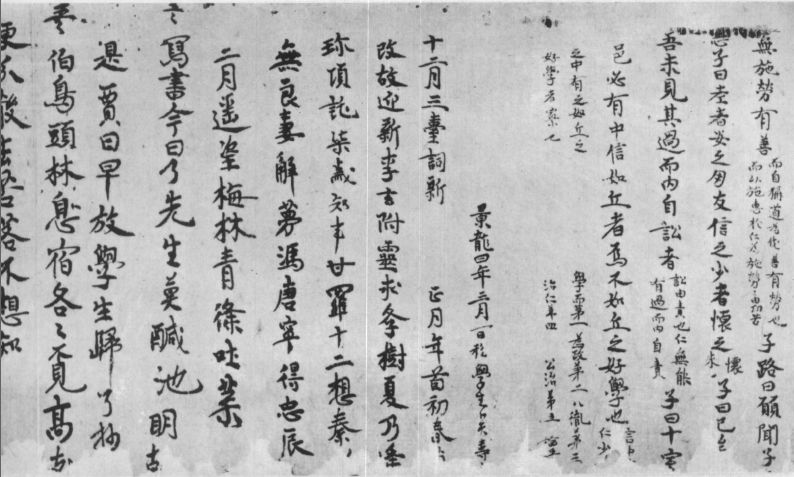 無施勞有善 而自稱道為伐善有勞也 而以施惠於仁為施勞 子路曰願聞子
志子曰老者安之朋友信之少者懷之 懷 來 子曰已矣
吾未見其過而內自訟者 訟由責也仁無能 有過而內自責 子曰十室
邑必有中信如丘者焉不如丘之好學也 言中 仁少
之中有之如丘之
好學者寡也
學而第一 為政第二 八佾第三
治仁第四 公冶第五
景龍四年三月一日私學生卜天壽
十二月三臺詞新 正月年首初春
改故迎新李玄附靈求學樹夏乃逢
珎項託柒歲知事甘羅十二想秦
無良妻解夢馮唐寧得忠辰
二月遙望梅林青條吐葉
寫書今日了先生莫鹹池明
是賈日早放學生歸 了抄
伯鳥頭林息宿各各覓高
更分散去 不想知